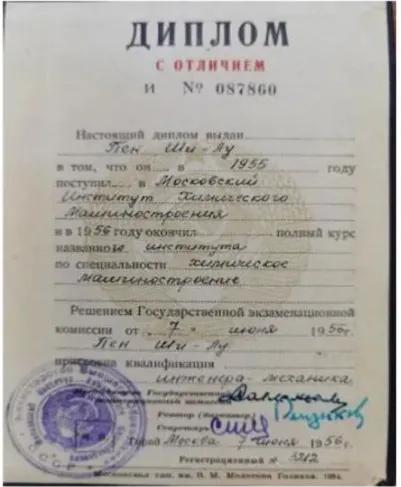 ДИПЛОМ
С ОТЛИЧИЕМ
И № 087860
Настоящий диплом выдан
Пен Ши-Лу
в том, что он в 1955 году
поступил в Московский
Институт Химического
Машиностроения
и в 1956 году окончил полный курс
названного института
по специальности химическое
машиностроение
Решением Государственной экзаменационной
комиссии от 7 июня 1956 г.
Пен Ши-Лу
присвоена квалификация
инженера-механика
Государственной
Ректор
Секретарь
Город Москва 7 июня 1956 г.
Регистрационный № 5212
Московская тип. им. В. М. Молотова Гознака. 1954.